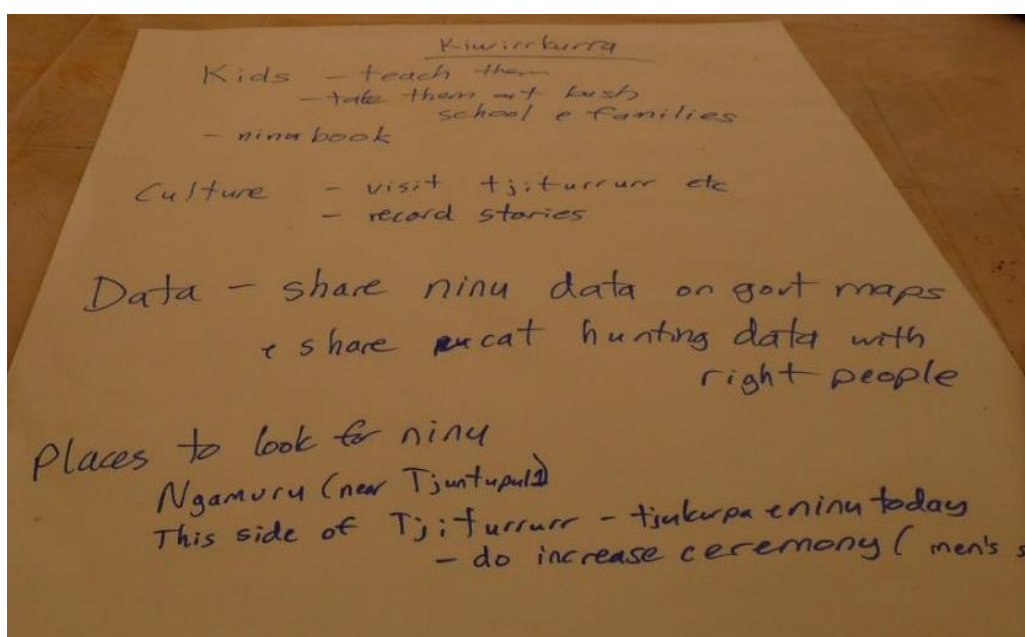 Kiwirrkurra
Kids - teach them
- take them out bush
school & families
- ninu book
Culture - visit tjiturrurr etc
- record stories
Data - share ninu data on govt maps
& share cat hunting data with
right people
Places to look for ninu
Ngamuru (near Tjuntupul)
This side of Tjiturrurr - tjukurpa & ninu today
- do increase ceremony ( men's s